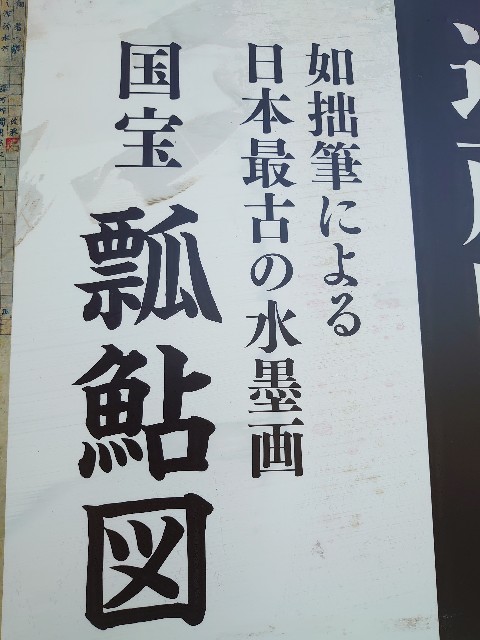 如拙筆による
日本最古の水墨画
国宝
瓢鮎図